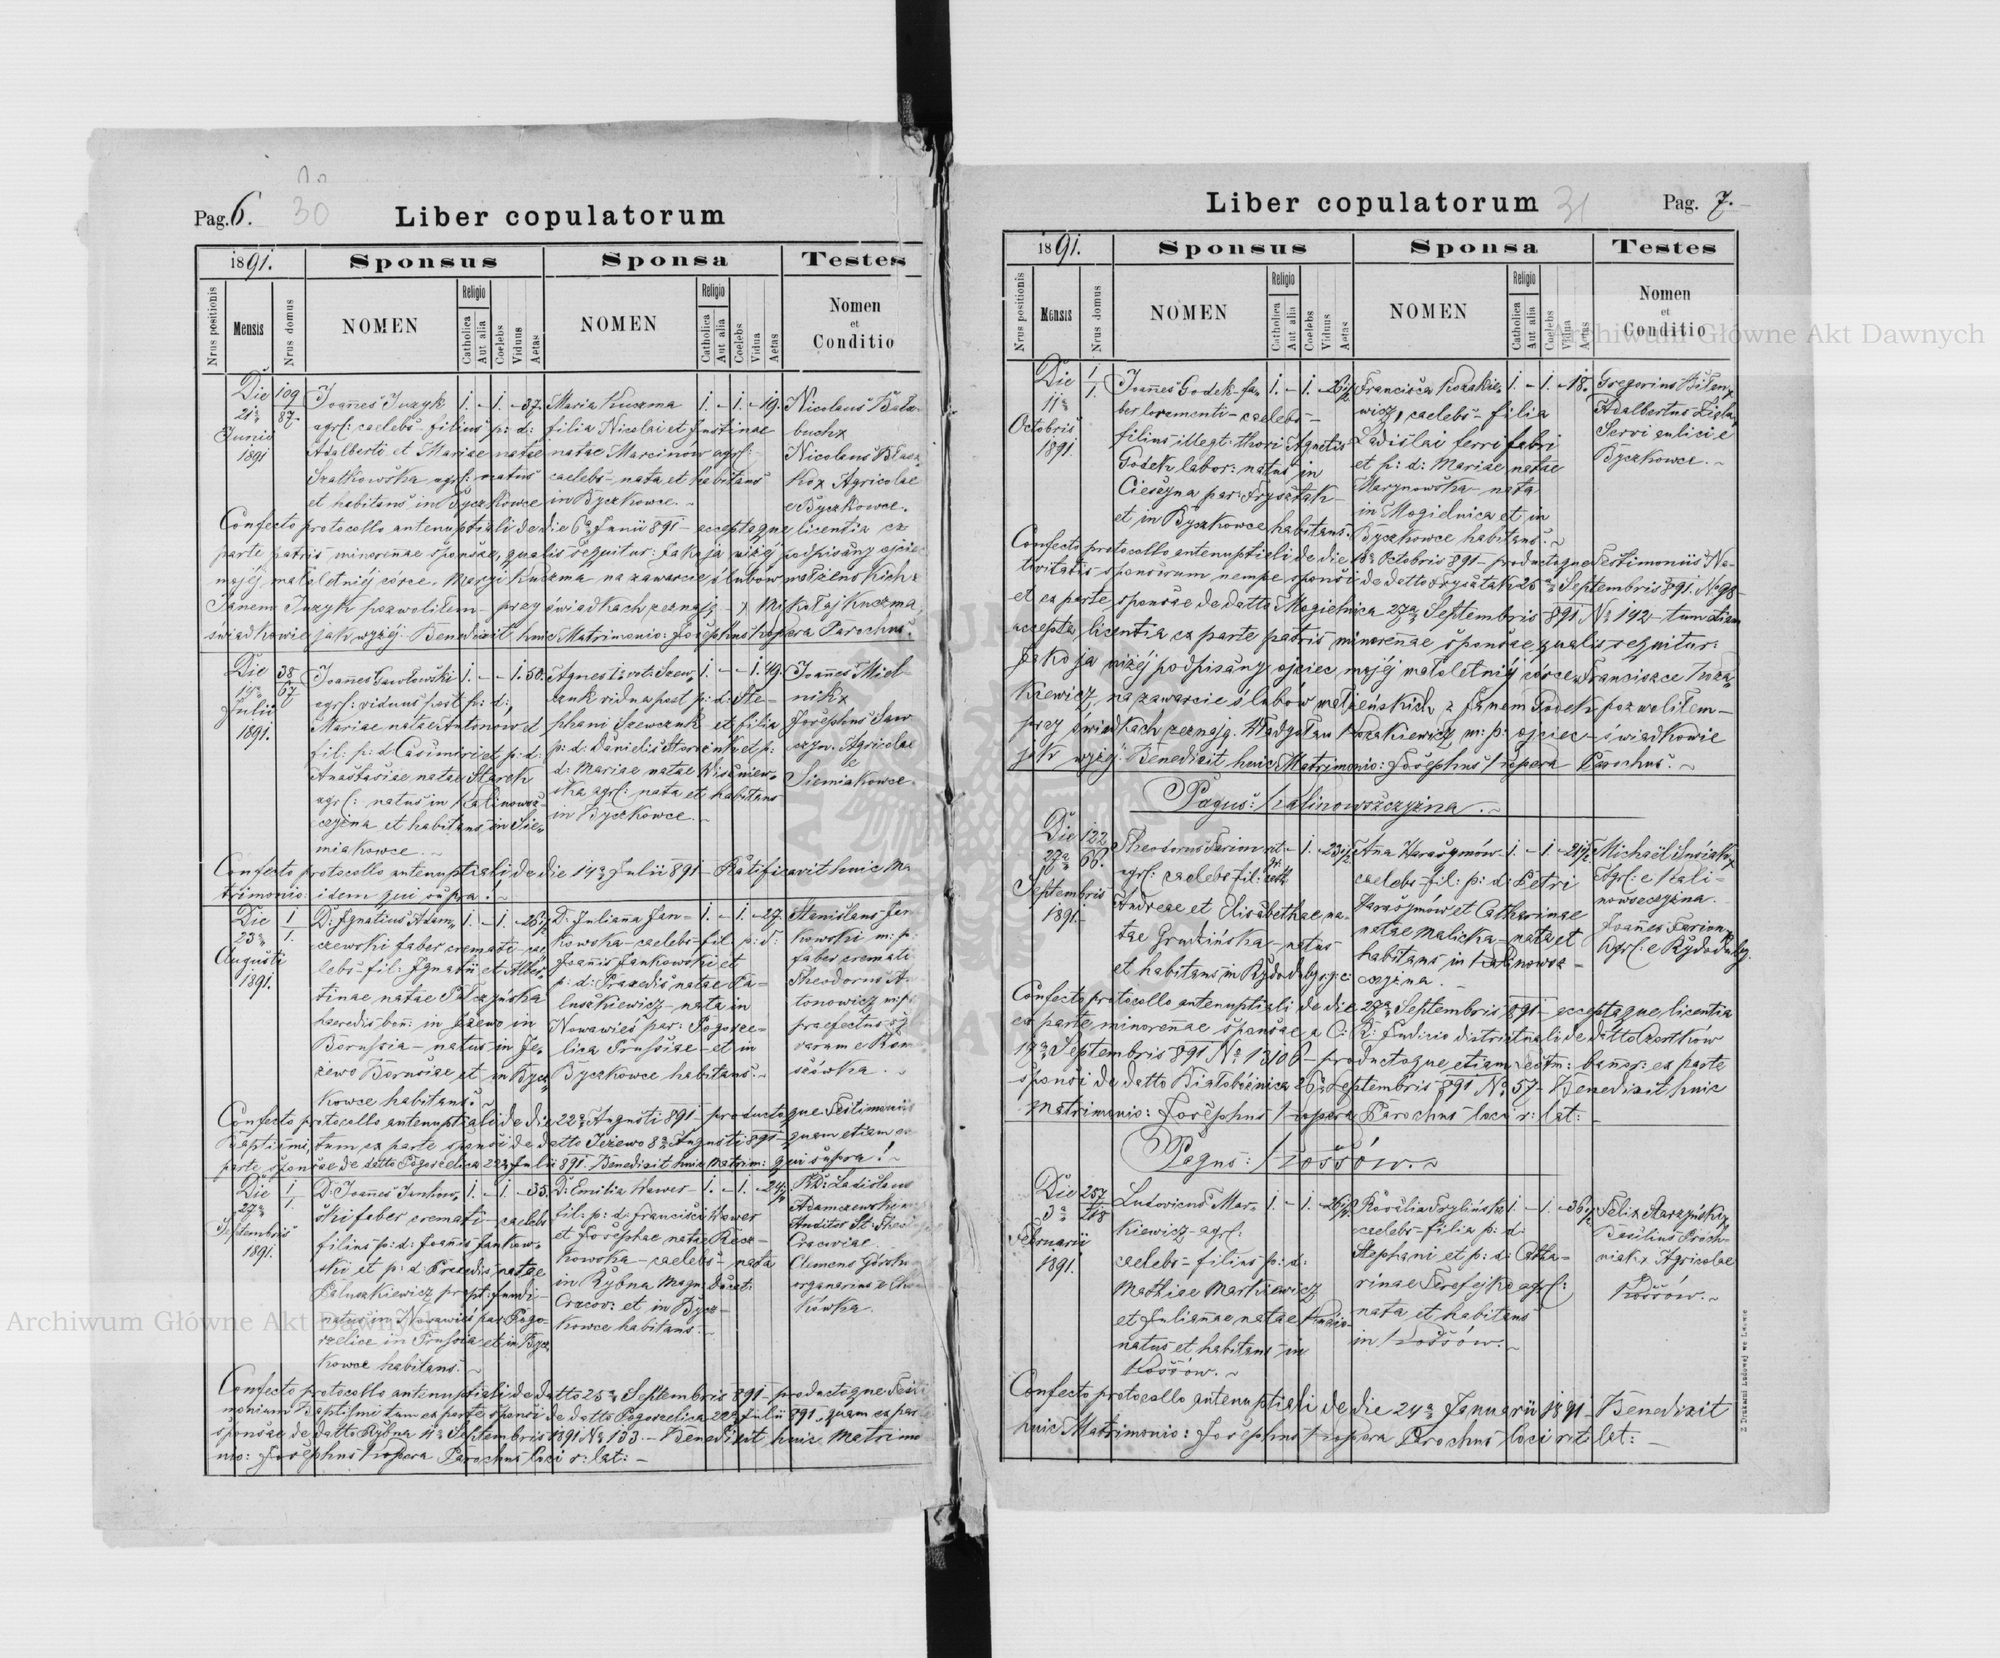 Pag. 6. 30 Liber copulatorum
1891. Sponsus Sponsa Testes
Nrus positionis Mensis Nrus domus NOMEN Religio Catholica Aut alia Coelebs Viduus Aetas NOMEN Religio Catholica Aut alia Coelebs Vidua Aetas Nomen et Conditio
Die 21a Junii 1891
109
87
Joannes Juzyk
agrl: caelebs filius p: d:
Adalberti et Mariae natae
agrl: natus
et habitans in Byczkowce
1. - 1. - 37.
Maria Kuczma
filia Nicolai et Justinae
natae Marcinów agrl:
caelebs - nata et habitans
in Byczkowce. -
1. - 1. - 19.
Nicolaus
Nicolaus
Agricolae
e Byczkowce.
Confecto protocollo antenuptiali de die 6a Junii 891 - acceptaque licentia ex
parte patris minorennae sponsae, qualis sequitur: Jako ja niżej podpisany ojciec
mojéj małoletniéj córce Maryi Kuczma na zawarcie ślubów małżeńskich z
Janem Juzyk pozwoliłem - przy świadkach zeznaję - x Mikołaj Kuczma,
świadkowie jak wyżéj. Benedixit huic Matrimonio: Josephus Kopera Parochus.
Die 14a Julii 1891.
38
67
Joannes
agrl: viduus post p: d:
Mariae natae Antonów et
fil: p: d: Casimiri et p: d:
Anastasiae natae Starek
agrl: natus in Kalinowsz-
czyzna et habitans in Sie-
miakowce. ~
1. - - 1. 50.
Agnes
vidua post p: d: Ste-
phani Szewczuk et filia
p: d: Danielis et p:
d: Mariae natae Wiśniew-
ska agrl: nata et habitans
in Byczkowce. ~
1. - - 1. 49.
Joannes Miel-
nik x
Josephus
Agricolae
e
Siemiakowce.
Confecto protocollo antenuptiali de die 14a Julii 891 - Ratificavit huic Ma
trimonio: idem qui supra. !
Die 23a Augusti 1891.
1
1.
D: Ignatius Adam-
czewski faber cremati - cae
lebs - fil: Ignatii et Alber-
tinae natae Pilczyńska
haeredis bon: in Jzewo in
Borussia - natus in Je-
zewo Borusiae et in Bycz
kowce habitans. ~
1. - 1. - 26 1/2
D: Julianna Jan-
kowska - caelebs - fil. p: d:
Joannis Jankowski et
p: d: Praxedis natae Pa-
luszkiewicz - nata in
Nowawieś par: Pogorze-
lica Prussiae - et in
Byczkowce habitans. ~
1. - 1. - 27.
Stanislaus Jan
kowski m: p:
faber cremati
Theodorus An
tonowicz m: p:
praefectus
varum e Rom
szówka. ~
Confecto protocollo antenuptiali de die 22a Augusti 891 - productoque Testimoniis
Baptismi, tum ex parte sponsi de datto Jezewo 8a Augusti 891 - quam etiam ex
parte sponsae de datto Pogorzelica 22a Julii 891. Benedixit huic Matrim: qui supra! ~
Die 27a Septembris 1891.
1
1.
D: Joannes Jankow-
ski faber cremati - caelebs
filius p: d: Joannis Jankow-
ski et p: d: Praxedis natae
Paluszkiewicz
natus in Nowawieś par Pogo-
rzelice in Prussia et in Bycz
kowce habitans. ~
1. - 1. - 35.
D: Emilia Wawer -
fil: p: d: Francisci Wawer
et Josephae natae Recz-
kowska - caelebs - nata
in Rybna Magn: Ducat:
Cracov: et in Bycz-
kowce habitans: ~
1. - 1. - 24 1/2
RD: Ladislaus
Adamczewski
Auditor St: Theol
Cracoviae.
Clemens
organarius e
kówka.
Confecto protocollo antenuptiali de datto 25a Septembris 891 - productoque Testi
monium Baptismi tum ex parte sponsi de datto Pogorzelica 22a Julii 891, quam ex par
sponsae de datto Rybna 11a Septembris 1891 No 133. - Benedixit huic Matrimo
nio: Josephus Kopera Parochus loci r: lat: -
Liber copulatorum 31 Pag. 7.
1891. Sponsus Sponsa Testes
Nrus positionis Mensis Nrus domus NOMEN Religio Catholica Aut alia Coelebs Viduus Aetas NOMEN Religio Catholica Aut alia Coelebs Vidua Aetas Nomen et Conditio
Die 11a Octobris 1891.
1
1.
Joannes Godek - fa-
ber - caelebs -
filius illegt: thori Agnetis
Godek labor: natus in
Cieszyna par: Frysztak
et in Byczkowce habitans.
1. - 1. - 26 1/2
Francisca Kozakie-
wicz, caelebs - filia
Ladislai ferri fabri
et p: d: Mariae natae
Marynowska - nata
in Mogielnica et in
Byczkowce habitans. ~
1. - 1. - 18.
Gregorius
Adalbertus
Servi aulici e
Byczkowce. ~
Confecto protocollo antenuptiali de die 10a Octobris 891 - productaque Testimoniis Na-
tivitatis sponsorum nempe sponsi de datto Frysztak 25a Septembris 891. No 98 -
et ex parte sponsae de datto Mogielnica 27a Septembris 891 No 142 - tum etiam
accepta licentia ex parte patris minorennae sponsae, qualis sequitur:
Jako ja niżéj podpisany ojciec mojéj małoletniéj córce Franciszce Koza-
kiewicz, na zawarcie ślubów małżeńskich z Janem Godek pozwoliłem -
przy świadkach zeznaję. Władysław Kozakiewicz m: p: ojciec - świadkowie
jak wyżéj. Benedixit huic Matrimonio: Josephus Kopera Parochus. ~
Pagus: Kalinowszczyzna. ~
Die 27a Septembris 1891.
122
66.
Theodorus Farion rit:
agrl: caelebs fil:
Andreae et Elisabethae na-
tae Grudzińska - natus
et habitans in Rydoduby
- 1. - 23 1/2
Anna Harasymów
caelebs - fil: p: d: Petri
Harasymów et Catharinae
natae Malicka - nata et
habitans in Kalinowsz-
czyzna. -
1. - 1. - 21 1/2
Michaël
Agrl: e Kali-
nowszczyzna.
Joannes Farion x
Agrl: e Rydoduby.
Confecto protocollo antenuptiali de die 27a Septembris 891 - acceptaque licentia
ex parte minorennae sponsae a C: R: Judicio districtuali de datto Czortków
17a Septembris 891 No 13106 - productoque etiam bannor: ex parte
sponsi de datto Białobóżnica 26a Septembris 891 No 57 - Benedixit huic
Matrimonio: Josephus Kopera Parochus loci r: lat:
Pagus: Kossów. ~
Die 3a Februarii 1891.
257
218
Ludovicus Mar-
kiewicz - agrl:
caelebs - filius p: d:
Mathiae Markiewicz
et Juliannae natae
natus et habitans in
Kossów. ~
1. - 1. - 26 1/2
Rosalia Trylińska
caelebs - filia p: d:
Stephani et p: d: Catha-
rinae agrl:
nata et habitans
in Kossów. ~
1. - 1. - 36 1/2
Felix Starzyński x
Basilius Proch-
niak x Agricolae
Kossów. ~
Confecto protocollo antenuptiali de die 24a Januarii 1891 - Benedixit
huic Matrimonio: Josephus Kopera Parochus loci rit: lat: -
Z Drukarni Ludowej we Lwowie
Archiwum Główne Akt Dawnych
Archiwum Główne Akt Dawnych